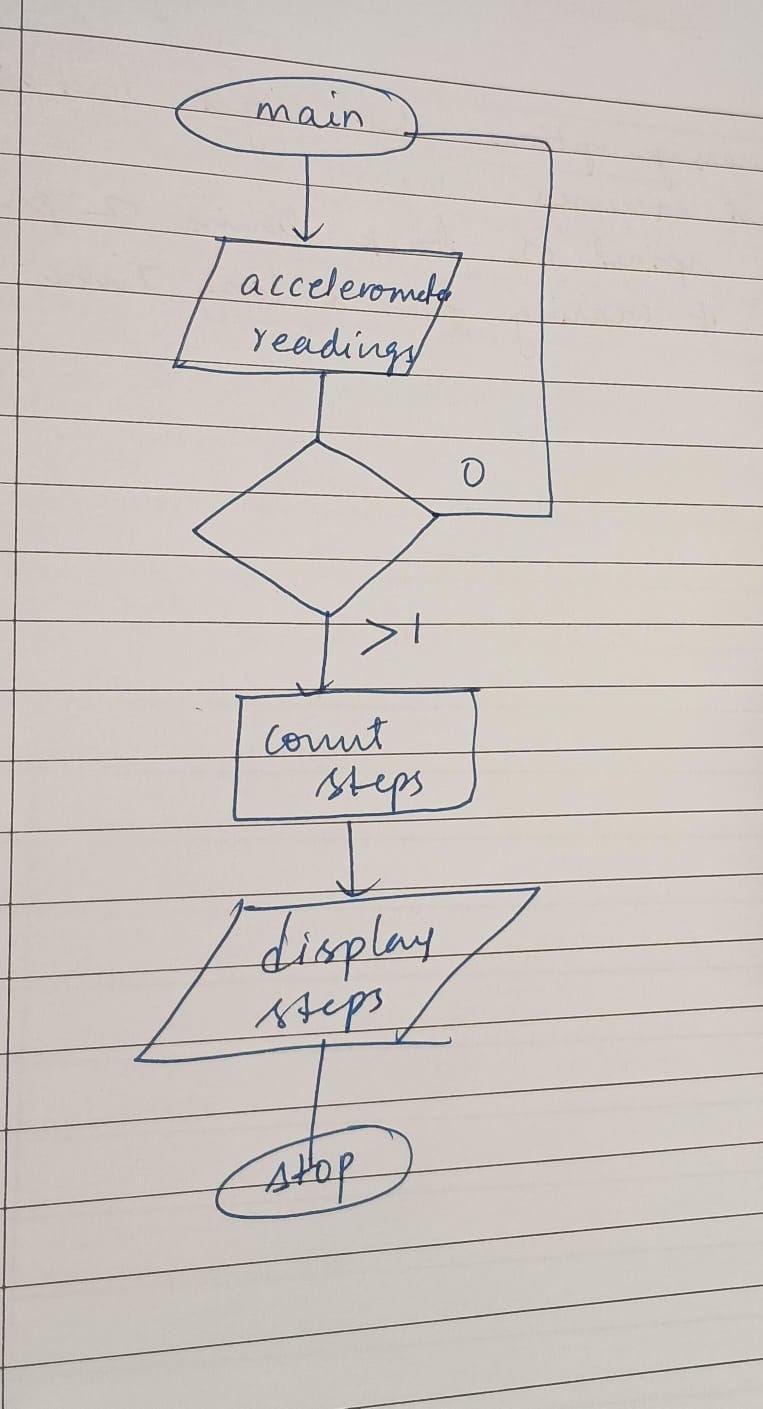 main
accelerometer
readings
0
>1
count
steps
display
steps
stop